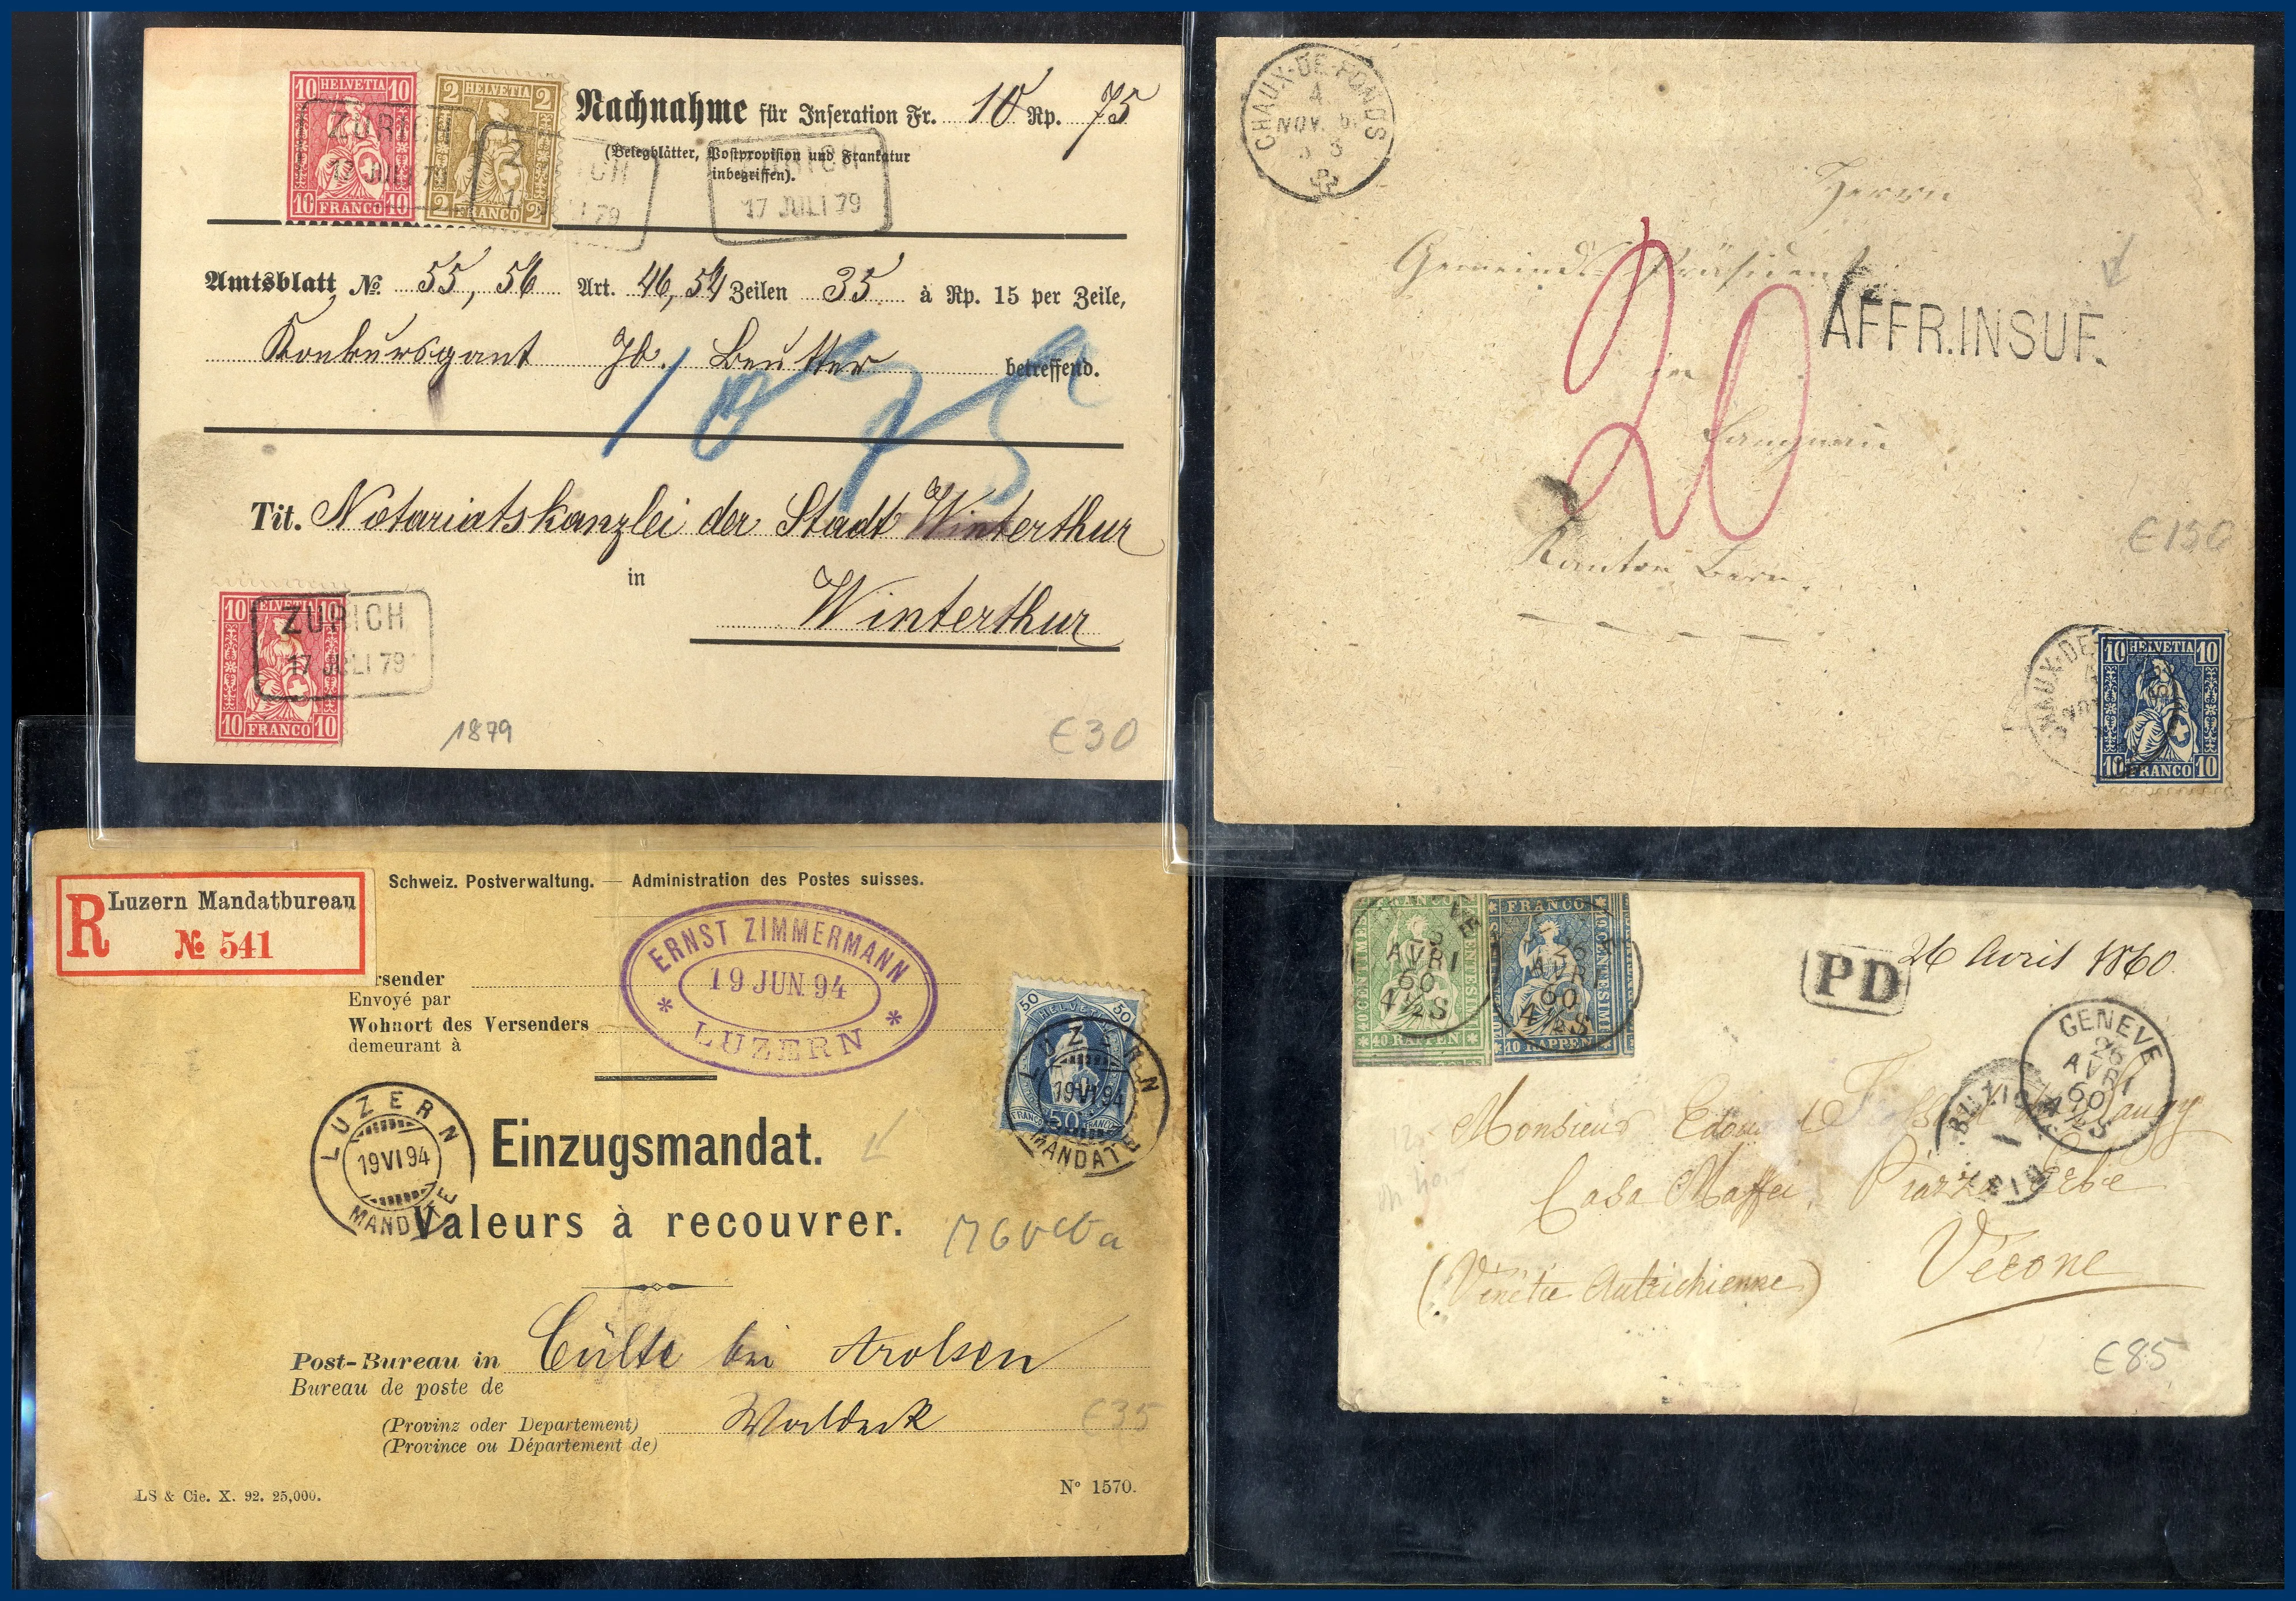 10 HELVETIA 10
10 FRANCO 10
2 HELVETIA 2
2 FRANCO 2
ZÜRICH
17 JULI 79
ZÜRICH
17 JULI 79
Nachnahme für Inseration Fr. 10 Rp. 75
(Belegblätter, Postprovision und Frankatur
inbegriffen).
Amtsblatt № 55, 56 Art. 46, 54 Zeilen 35 à Rp. 15 per Zeile,
Konkursgant Jb. Beutter betreffend.
Tit. Notariatskanzlei der Stadt Winterthur
in
Winterthur
10 HELVETIA 10
10 FRANCO 10
ZÜRICH
17 JULI 79
1879
€30
CHAUX-DE-FONDS
4
NOV.
Herrn
Gemeinds-Präsident
AFFR.INSUF.
20
in
Langnau
Kanton Bern.
€150
10 HELVETIA 10
10 FRANCO 10
R Luzern Mandatbureau
№ 541
Schweiz. Postverwaltung. — Administration des Postes suisses.
ERNST ZIMMERMANN
19 JUN. 94
* LUZERN *
rsender
Envoyé par
Wohnort des Versenders
demeurant à
50 HELVETIA 50
FRANCO 50 FRANCO
LUZERN
19 VI 94
MANDATE
LUZERN
19 VI 94
MANDATE
Einzugsmandat.
Valeurs à recouvrer.
Post-Bureau in Cülte bei Arolsen
Bureau de poste de
(Provinz oder Departement) Waldeck
(Province ou Département de)
€35
LS & Cie. X. 92. 25,000.
N° 1570.
FRANCO
40 RAPPEN
10 RAPPEN
26
AVRI
60
4½S
PD
26 Avril 1860.
GENEVE
26
AVRI
60
4½S
Monsieur
Casa Maffei, Piazza Erbe
Vérone
(Vénétie Autrichienne)
€85